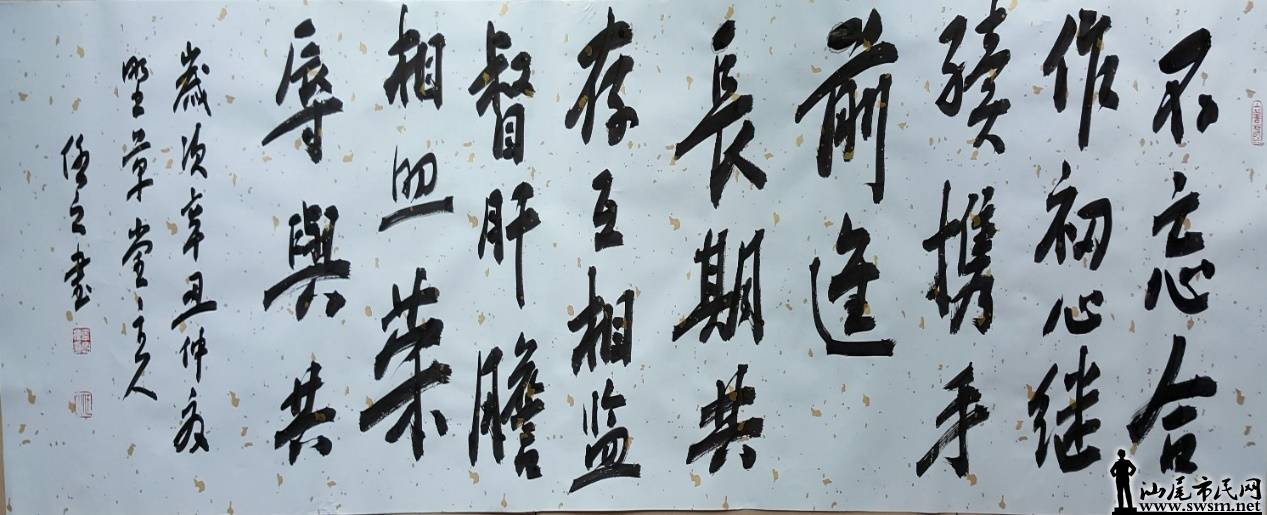 不忘合
作初心继
續携手
前進
長期共
存互相监
督肝膽
相照荣
辱與共
歲次辛丑仲夏
墅草堂主人
书
汕尾市民网
www.swsm.net